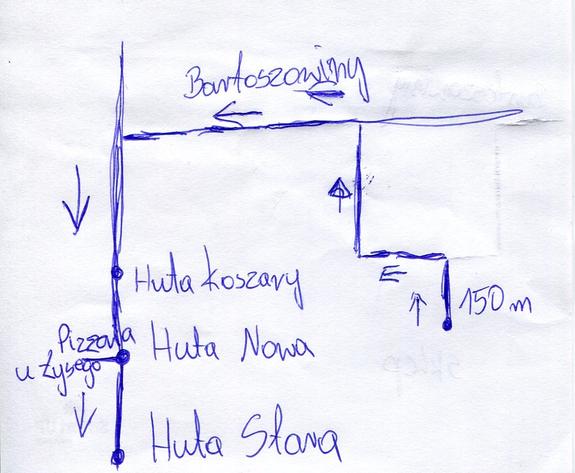 Bartoszowiny
Huta Koszary
E
150 m
Pizzeria
u Łysego
Huta Nowa
Huta Stara